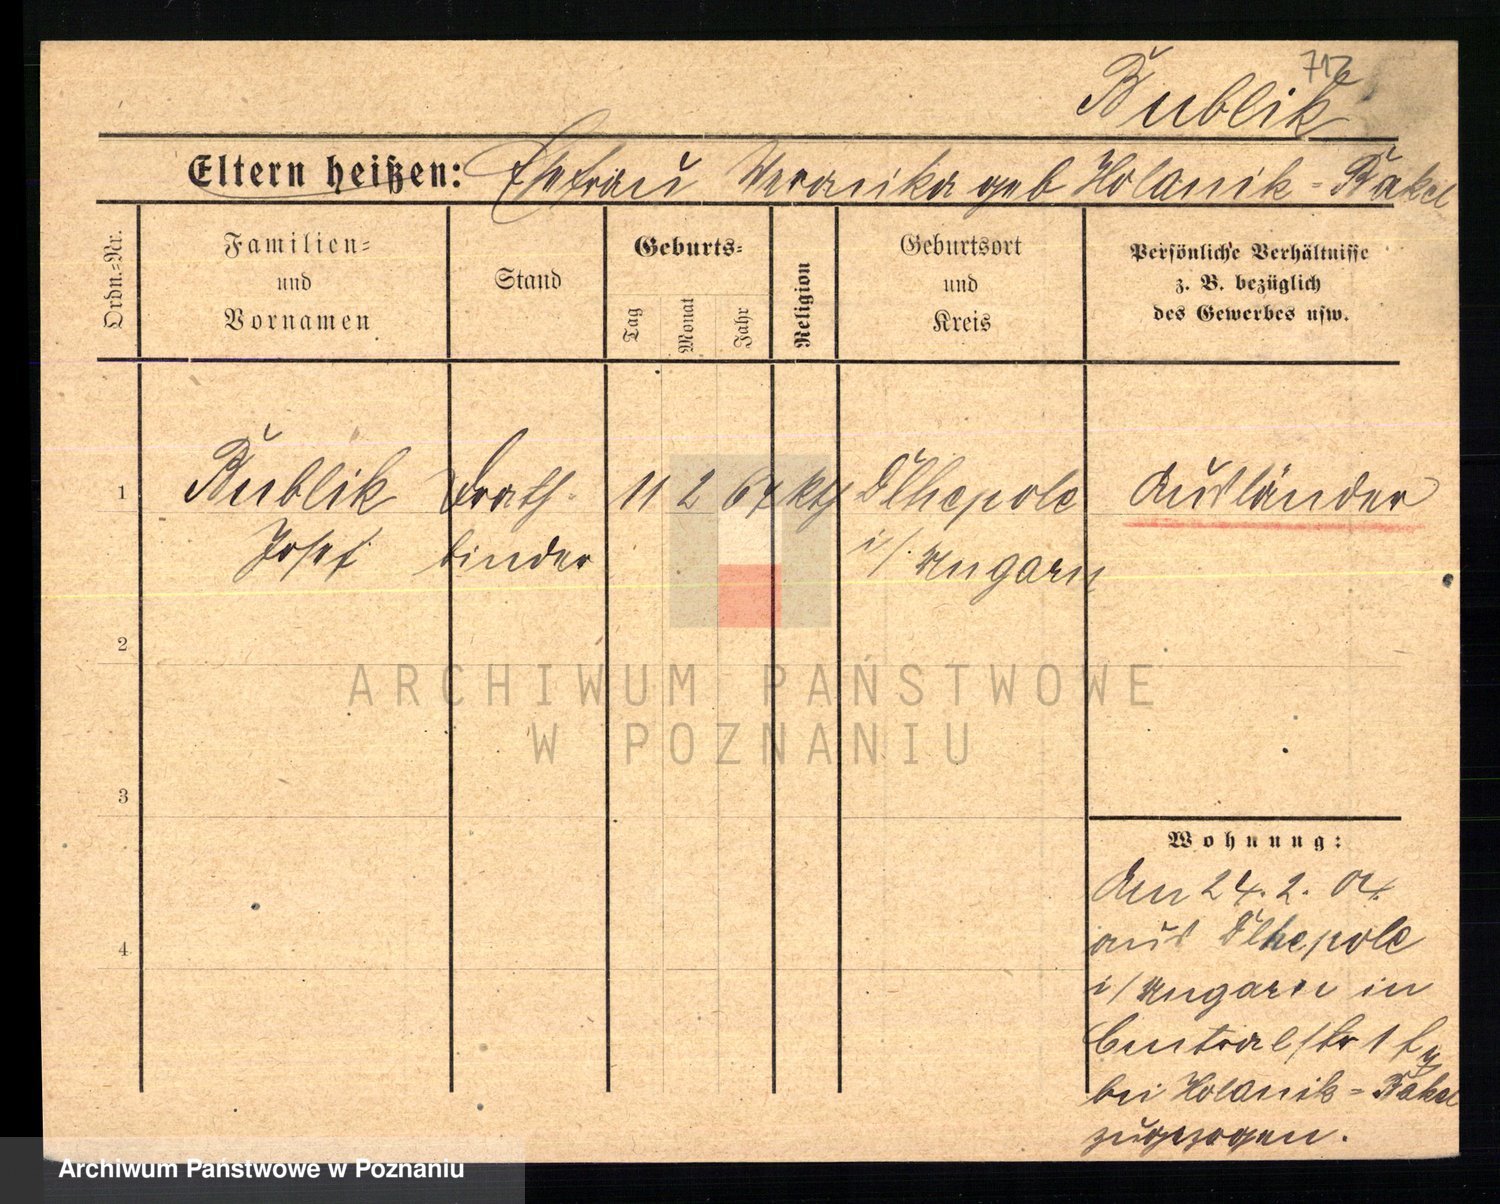 717
Bublik
Eltern heißen: Ehefrau Veronika geb Holanik = Bakel
Ordn.=Nr.
Familien=
und
Vornamen
Stand
Geburts=
Tag
Monat
Jahr
Religion
Geburtsort
und
Kreis
Persönliche Verhältnisse
z. B. bezüglich
des Gewerbes usw.
1
Bublik
Josef
Drath-
binder
11 2 67 kth
Dlhepole
i/ Ungarn
Ausländer
2
3
4
ARCHIWUM PAŃSTWOWE
W POZNANIU
Wohnung:
Am 24. 2. 04.
aus Dlhepole
i/Ungarn in
Centralstr 1
bei Holanik = Bakel
zugezogen.
Archiwum Państwowe w Poznaniu